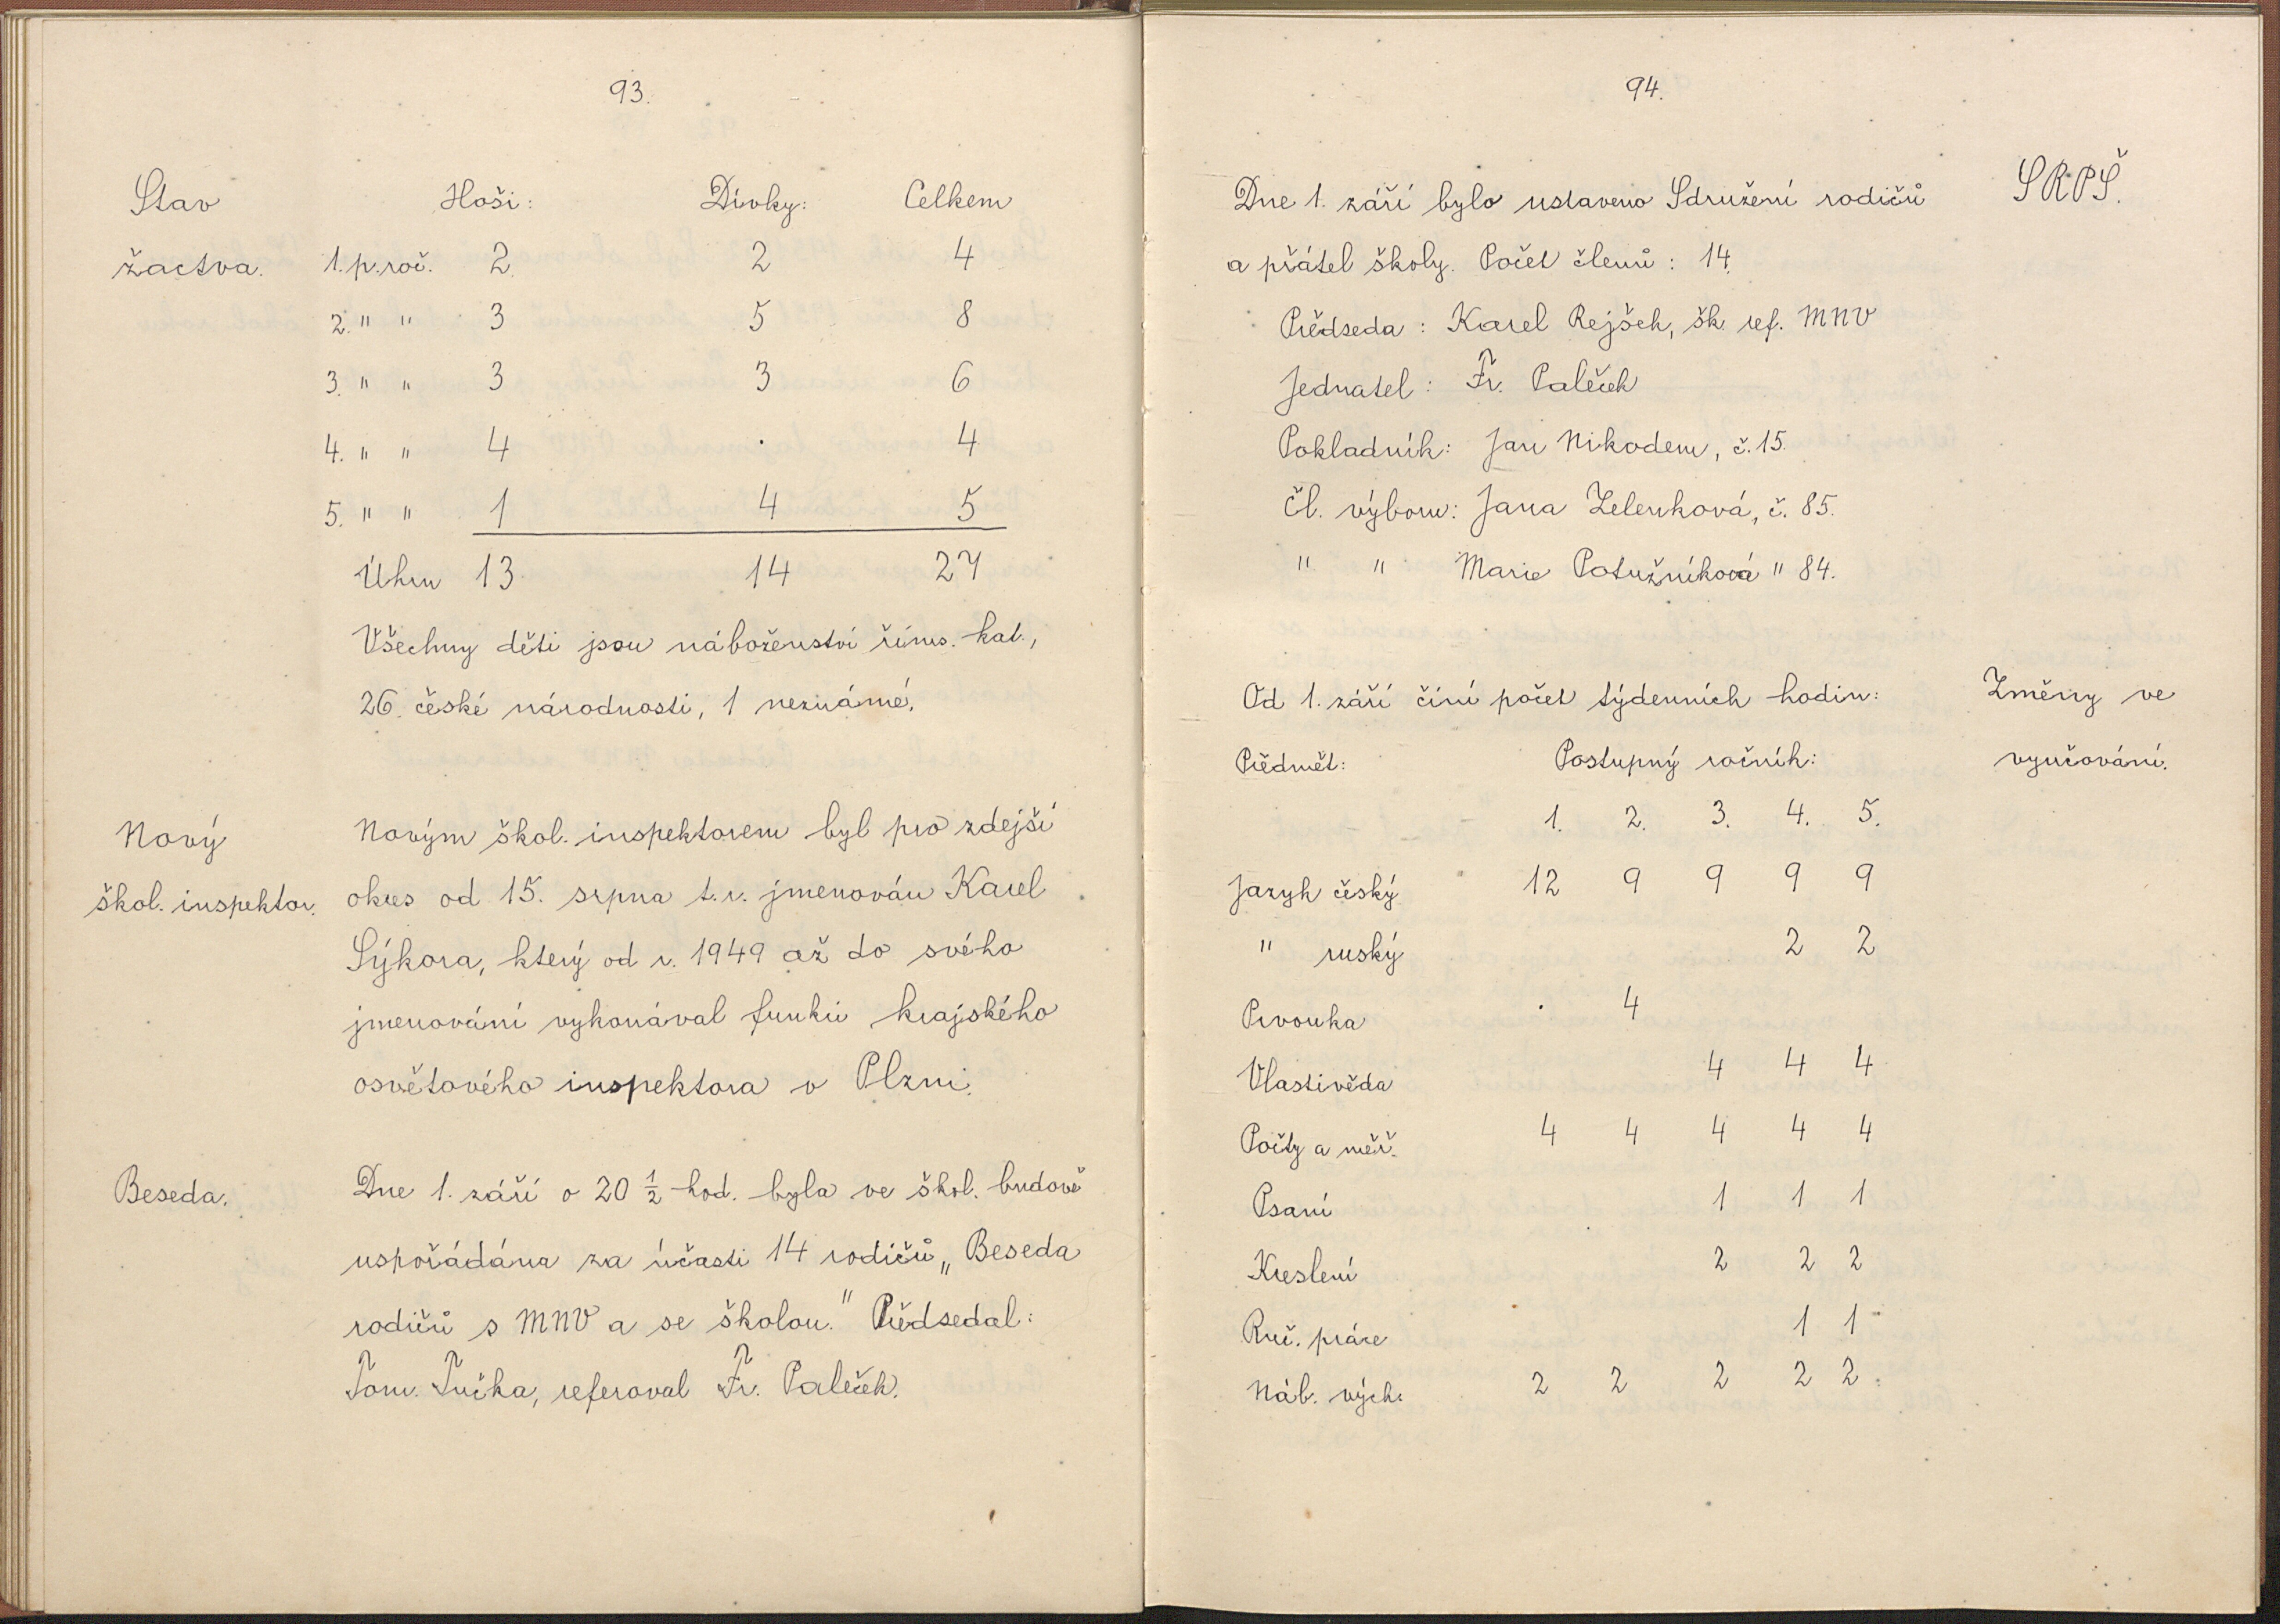 93.
Stav Hoši: Dívky: Celkem
žactva. 1. p. roč. 2 2 4
2. " " 3 5 8
3. " " 3 3 6
4. " " 4 . 4
5. " " 1 4 5
Úhrn 13 14 27
Všechny děti jsou náboženství říms. kat.,
26 české národnosti, 1 neznámé.
Nový Novým škol. inspektorem byl pro zdejší
škol. inspektor. okres od 15. srpna t.r. jmenován Karel
Sýkora, který od r. 1949 až do svého
jmenování vykonával funkci krajského
osvětového inspektora v Plzni.
Beseda. Dne 1. září o 20 ½ hod. byla ve škol. budově
uspořádána za účasti 14 rodičů „Beseda
rodičů s MNV a se školou." Předsedal:
Tom. Tučka, referoval Fr. Paleček.
94.
Dne 1. září bylo ustaveno Sdružení rodičů SRPŠ.
a přátel školy. Počet členů: 14.
Předseda: Karel Rejšek, šk. ref. MNV
Jednatel: Fr. Paleček
Pokladník: Jan Nikodem, č. 15.
Čl. výboru: Jana Zelenková, č. 85.
" " Marie Potužníková " 84.
Od 1. září činí počet týdenních hodin: Změny ve
Předmět: Postupný ročník: vyučování.
1. 2. 3. 4. 5.
Jazyk český 12 9 9 9 9
" ruský 2 2
Prvouka . 4
Vlastivěda 4 4 4
Počty a měř. 4 4 4 4 4
Psaní 1 1 1
Kreslení 2 2 2
Ruč. práce 1 1
Náb. vých. 2 2 2 2 2